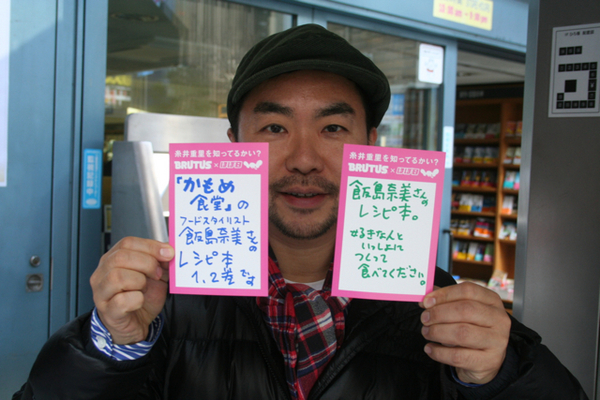 糸井重里を知ってるかい?
BRUTUS×ほぼ日
「かもめ
食堂」の
フードスタイリスト
飯島奈美さんの
レシピ本
1、2巻です
糸井重里を知ってるかい?
BRUTUS×ほぼ日
飯島奈美さんの
レシピ本。
好きな人と
いっしょに
つくって
食べてください。